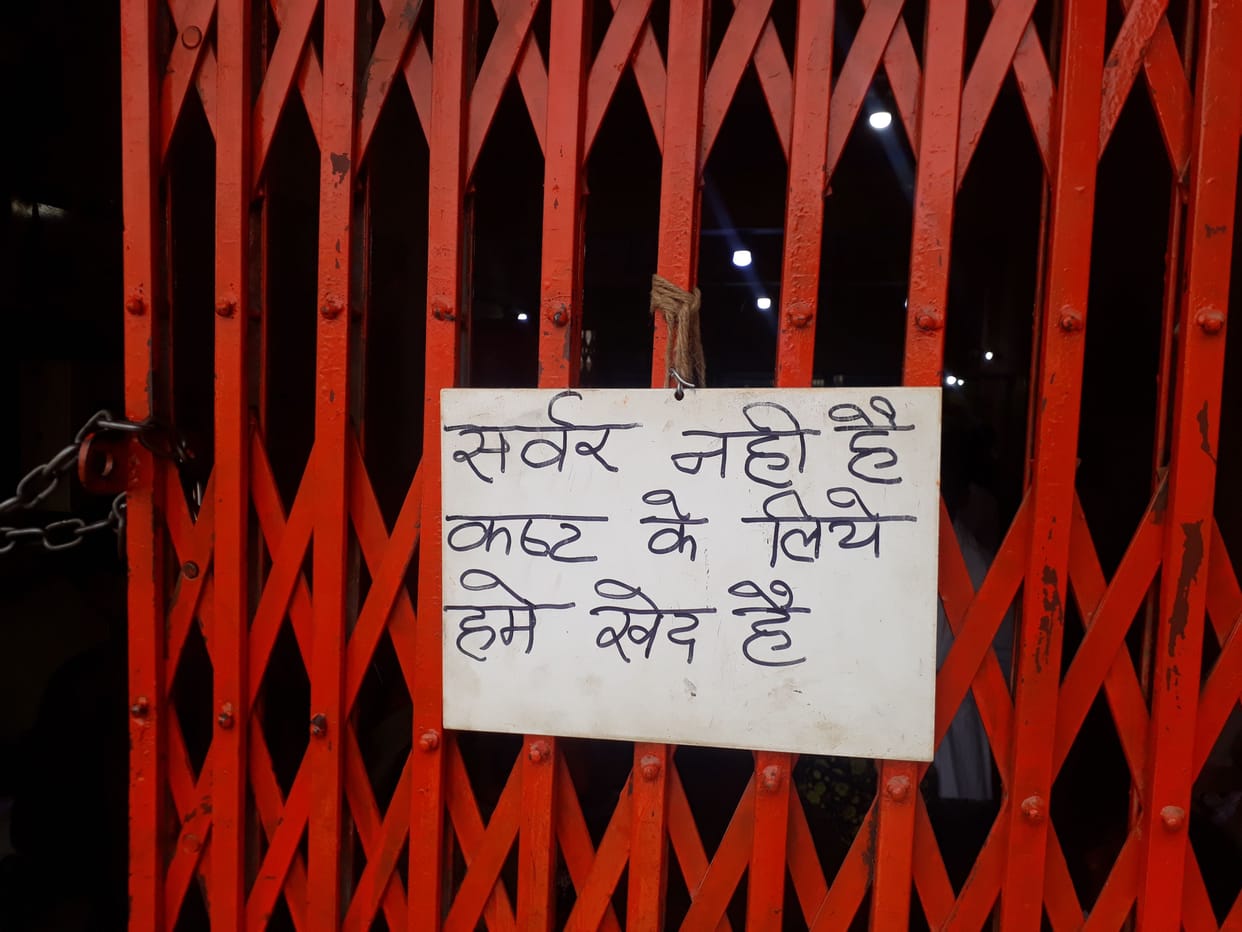 सर्वर नही है
कष्ट के लिये
हमे खेद है